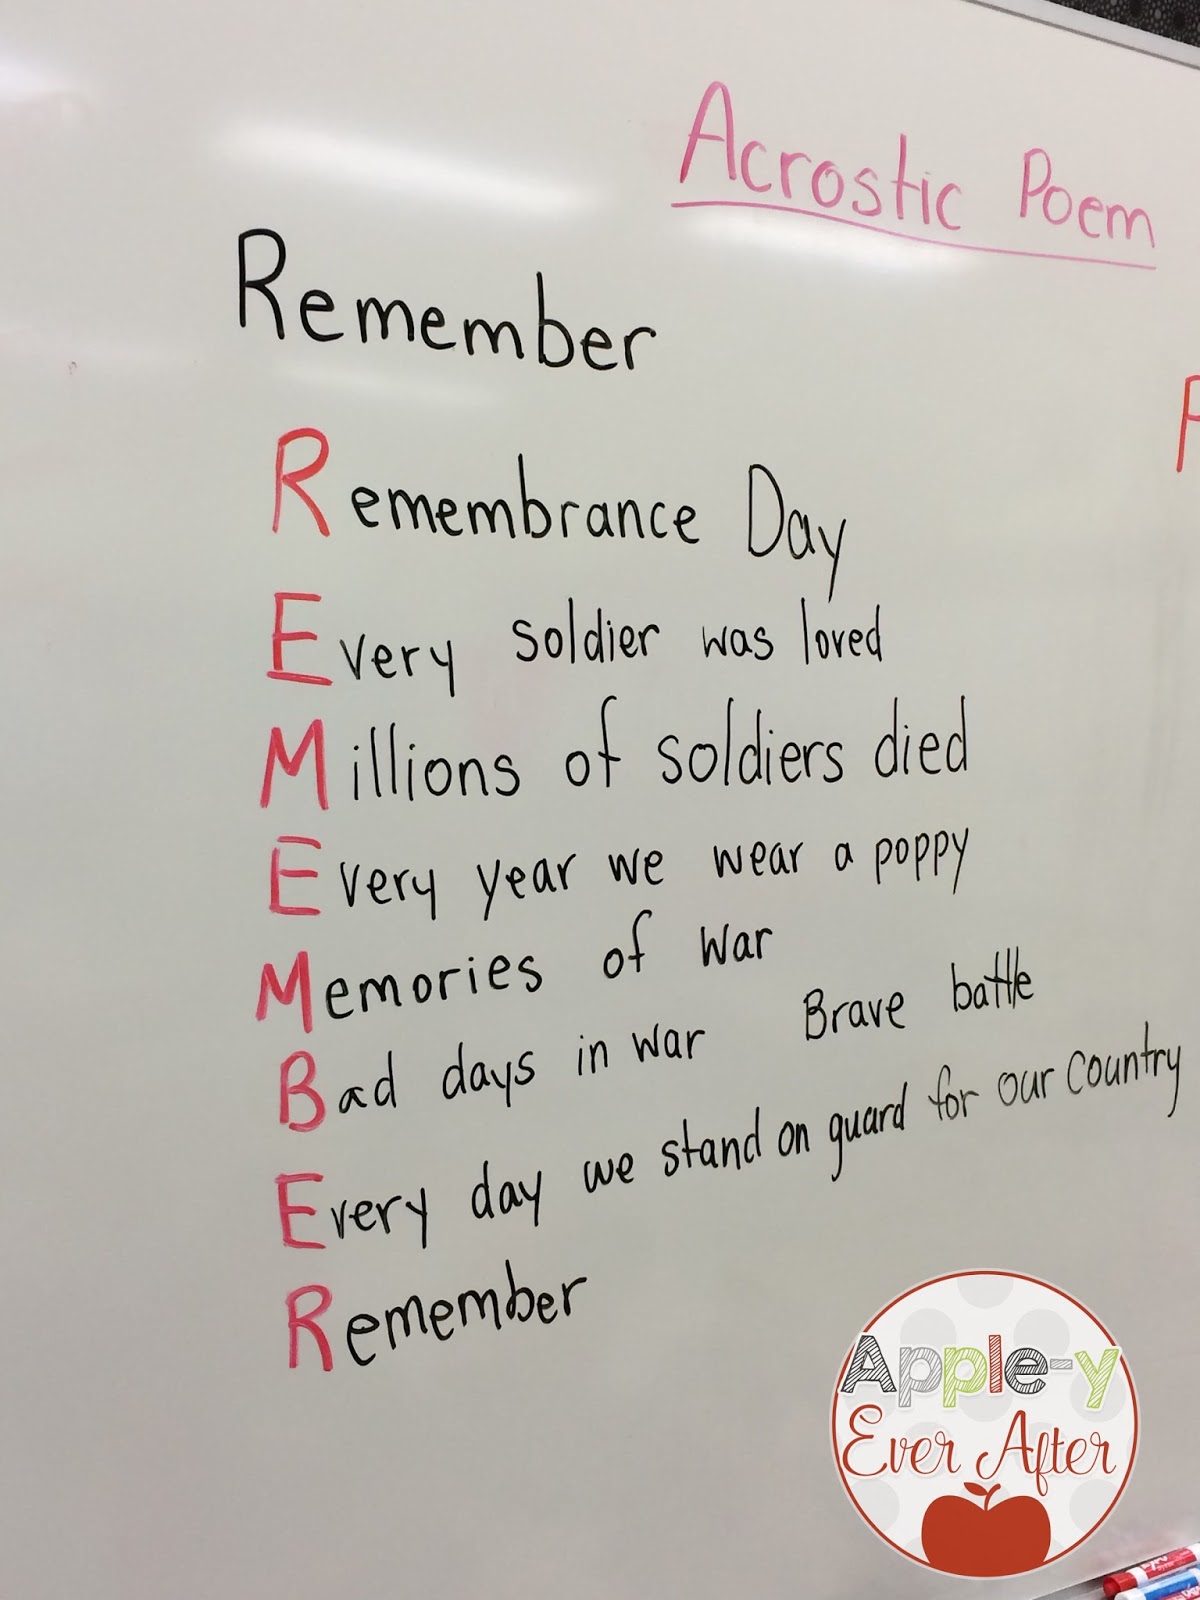 Acrostic Poem
Remember
Remembrance Day
Every soldier was loved
Millions of soldiers died
Every year we wear a poppy
Memories of war
Bad days in war Brave battle
Every day we stand on guard for our country
Remember
Apple-y
Ever After